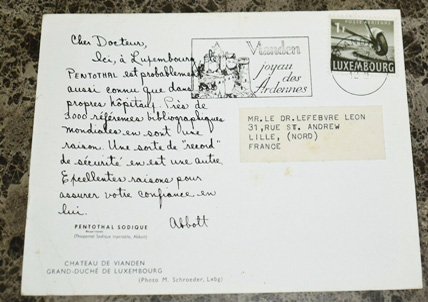 Cher Docteur,
Ici, à Luxembourg
PENTOTHAL est probablement
aussi connu que dans
propres hôpitaux. Près de
3000 références bibliographiques
mondiales en sont une
raison. Une sorte de "record"
de sécurité en est une autre.
Excellentes raisons pour
assurer votre confiance en
lui.
Abbott
PENTOTHAL SODIQUE
(Thiopental Sodique injectable, Abbott)
CHATEAU DE VIANDEN
GRAND-DUCHÉ DE LUXEMBOURG
(Photo M. Schroeder, Lxbg)
Vianden
joyau
des
Ardennes
POSTE AERIENNE
1F
LUXEMBOURG
MR.LE DR.LEFEBVRE LEON
31,RUE ST. ANDREW
LILLE, (NORD)
FRANCE